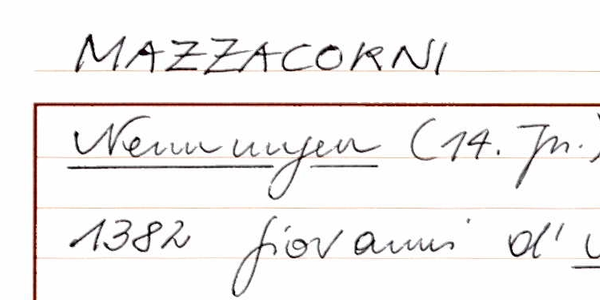 MAZZACORNI
Nennungen (14. Jh.)
1382 Giovanni d'